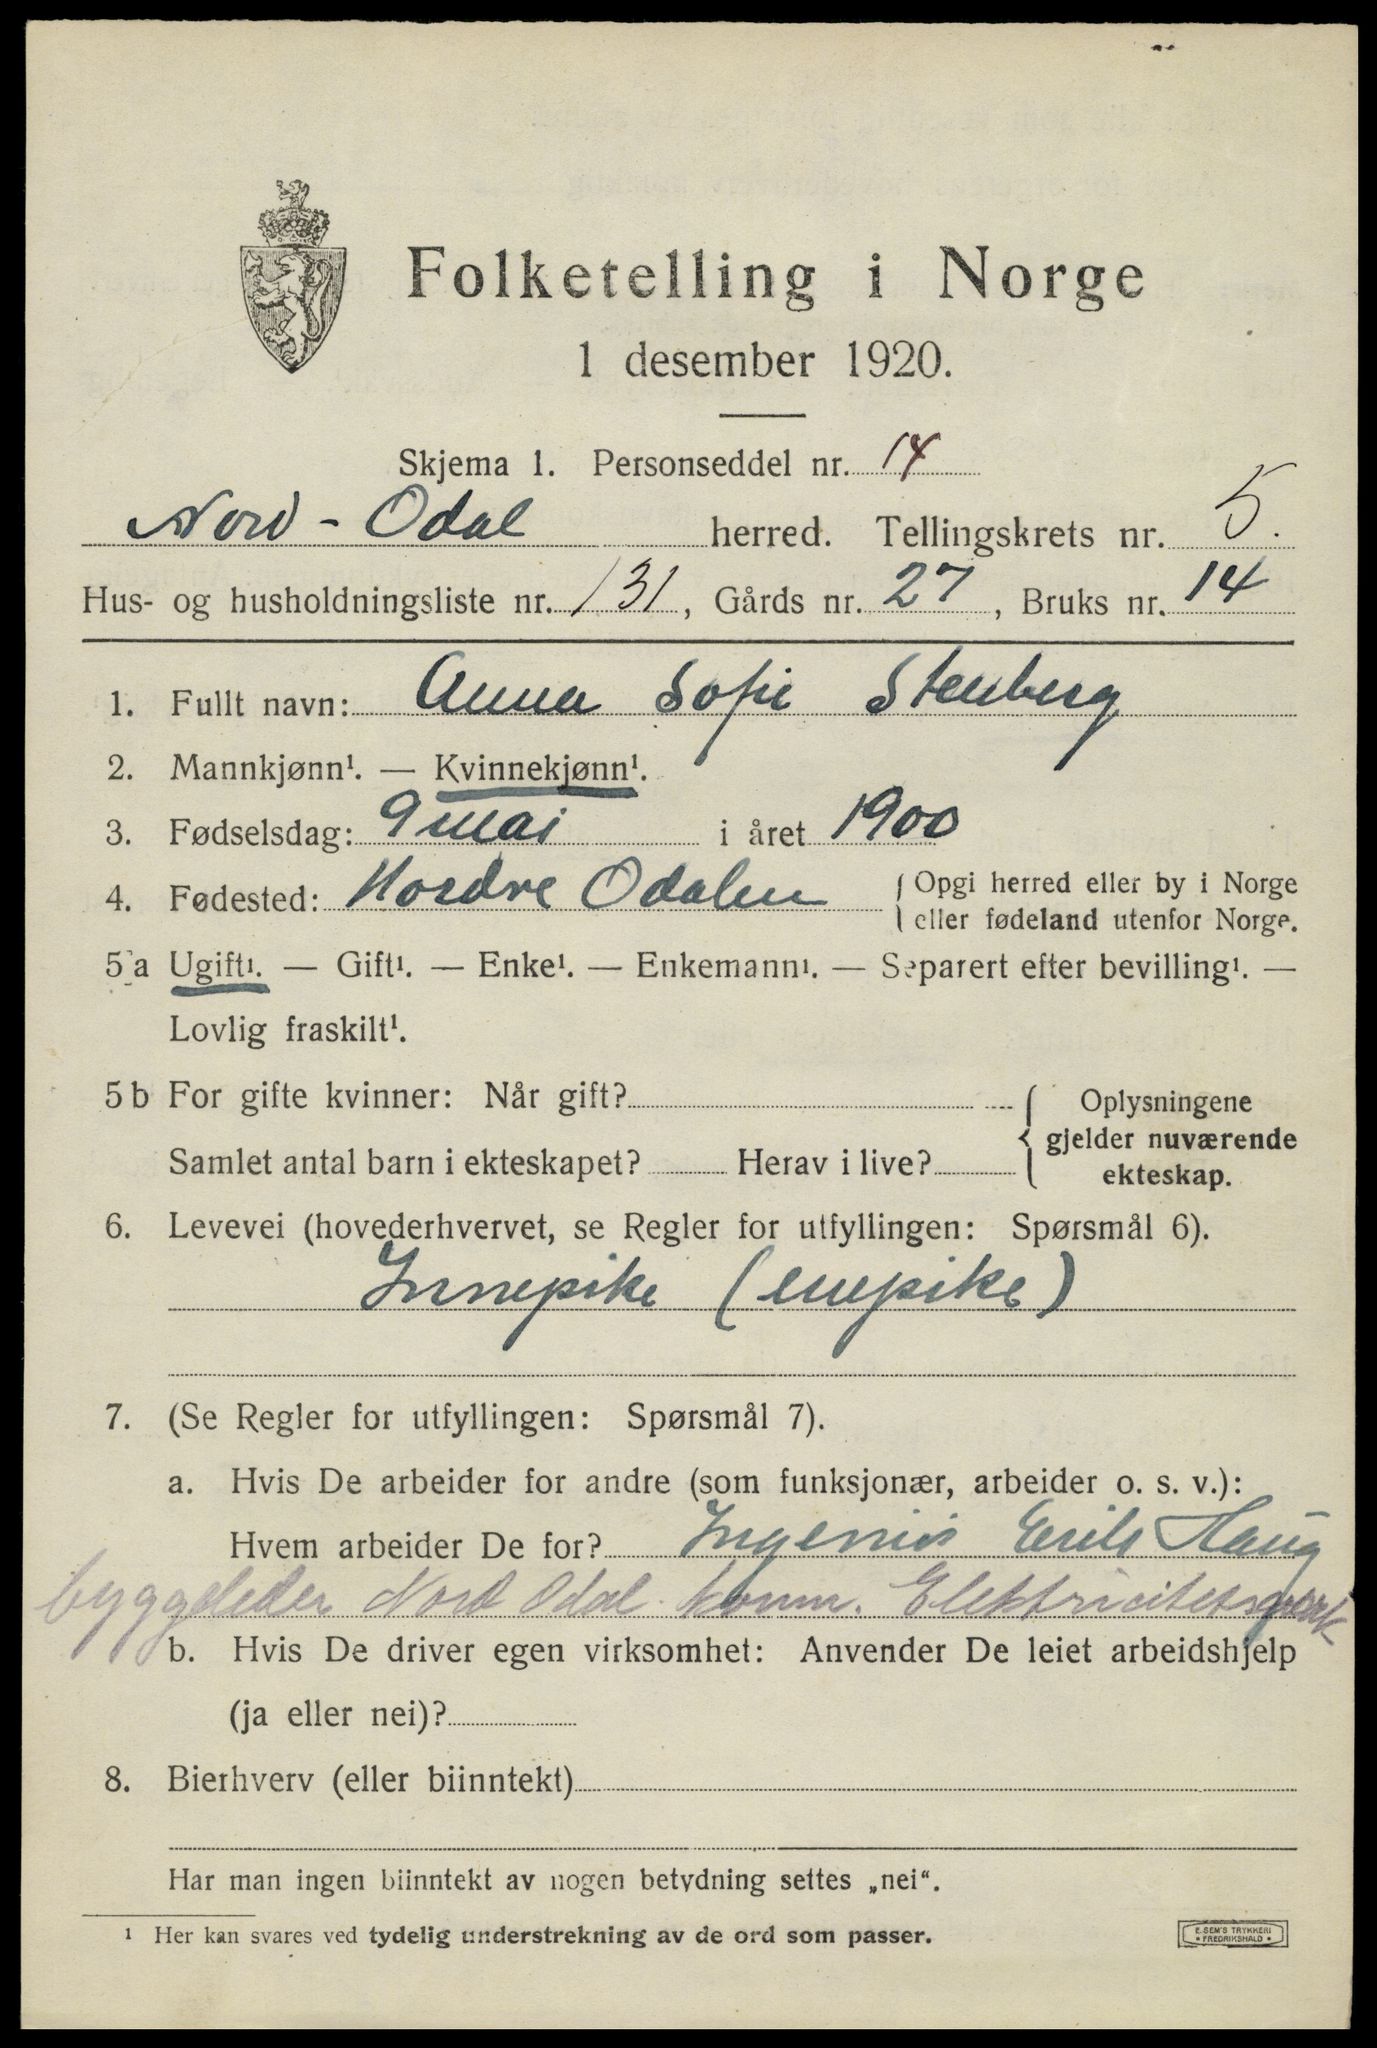 Folketelling i Norge
1 desember 1920.
Skjema 1. Personseddel nr. 14
Nord - Odal herred. Tellingskrets nr. 5.
Hus- og husholdningsliste nr. 131, Gårds nr. 27, Bruks nr. 14
1. Fullt navn: Anna Sofie Stenberg
2. Mannkjønn¹. — Kvinnekjønn¹.
3. Fødselsdag: 9 mai i året 1900
4. Fødested: Nordre Odalen { Opgi herred eller by i Norge
eller fødeland utenfor Norge.
5 a Ugift¹. — Gift¹. — Enke¹. — Enkemann¹. — Separert efter bevilling¹. —
Lovlig fraskilt¹.
5 b For gifte kvinner: Når gift? { Oplysningene
gjelder nuværende
Samlet antal barn i ekteskapet? Herav i live? ekteskap.
6. Levevei (hovederhvervet, se Regler for utfyllingen: Spørsmål 6).
Innepike (enepike)
7. (Se Regler for utfyllingen: Spørsmål 7).
a. Hvis De arbeider for andre (som funksjonær, arbeider o. s. v.):
Hvem arbeider De for? Ingeniør Erik Haug
byggeleder Nord Odal komm. Elektricitetsverk
b. Hvis De driver egen virksomhet: Anvender De leiet arbeidshjelp
(ja eller nei)?
8. Bierhverv (eller biinntekt)
Har man ingen biinntekt av nogen betydning settes „nei“.
¹ Her kan svares ved tydelig understrekning av de ord som passer.
E. SEM'S TRYKKERI
* FREDRIKSHALD *